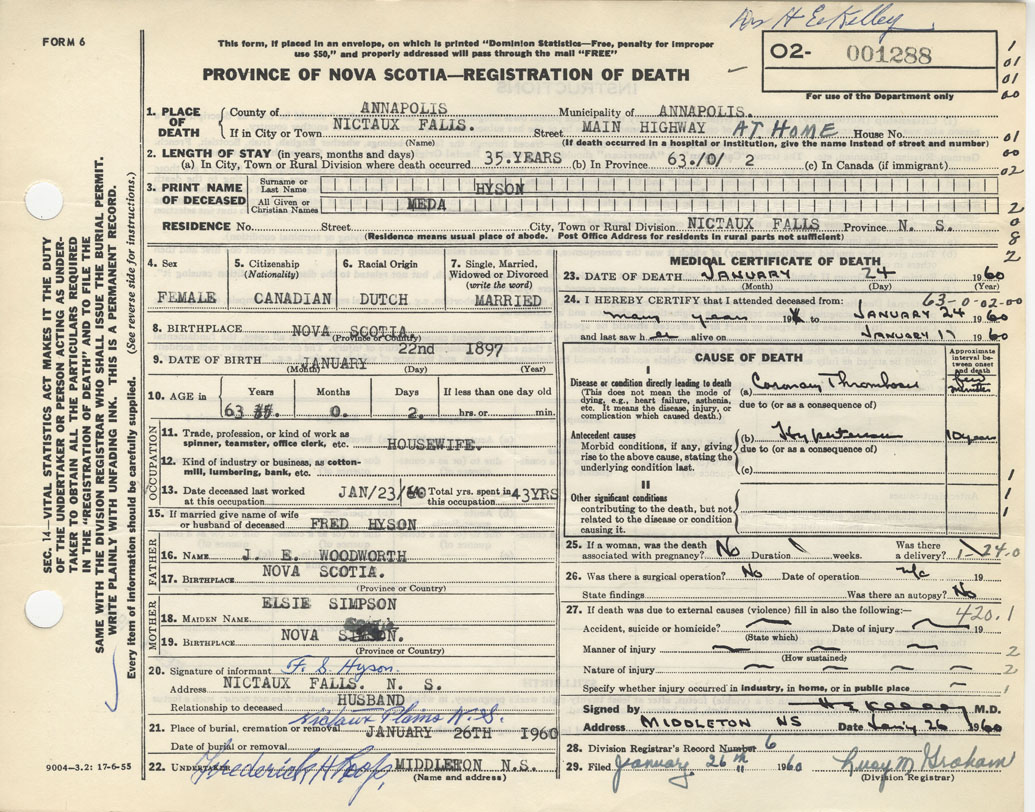 Drs H E Kelley
FORM 6
This form, if placed in an envelope, on which is printed "Dominion Statistics—Free, penalty for improper
use $50," and properly addressed will pass through the mail "FREE"
PROVINCE OF NOVA SCOTIA—REGISTRATION OF DEATH
02- 001288
For use of the Department only
1. PLACE OF DEATH { County of ANNAPOLIS Municipality of ANNAPOLIS.
If in City or Town NICTAUX FALLS. Street MAIN HIGHWAY AT HOME House No.
(Name) (If death occurred in a hospital or institution, give the name instead of street and number)
2. LENGTH OF STAY (in years, months and days)
(a) In City, Town or Rural Division where death occurred 35.YEARS (b) In Province 63./0/ 2 (c) In Canada (if immigrant)
3. PRINT NAME OF DECEASED { Surname or Last Name HYSON
All Given or Christian Names MEDA
RESIDENCE No. Street City, Town or Rural Division NICTAUX FALLS Province N. S.
(Residence means usual place of abode. Post Office Address for residents in rural parts not sufficient)
SEC. 14—VITAL STATISTICS ACT MAKES IT THE DUTY
OF THE UNDERTAKER OR PERSON ACTING AS UNDER-
TAKER TO OBTAIN ALL THE PARTICULARS REQUIRED
IN THE "REGISTRATION OF DEATH" AND TO FILE THE
SAME WITH THE DIVISION REGISTRAR WHO SHALL ISSUE THE BURIAL PERMIT.
WRITE PLAINLY WITH UNFADING INK. THIS IS A PERMANENT RECORD.
Every item of information should be carefully supplied. (See reverse side for instructions.)
4. Sex 5. Citizenship (Nationality) 6. Racial Origin 7. Single, Married, Widowed or Divorced (write the word)
FEMALE CANADIAN DUTCH MARRIED
8. BIRTHPLACE NOVA SCOTIA.
(Province or Country)
9. DATE OF BIRTH JANUARY 22nd 1897
(Month) (Day) (Year)
10. AGE in Years Months Days If less than one day old
63 0. 2. hrs. or min.
OCCUPATION
11. Trade, profession, or kind of work as spinner, teamster, office clerk, etc. HOUSEWIFE.
12. Kind of industry or business, as cotton-mill, lumbering, bank, etc.
13. Date deceased last worked at this occupation JAN/23/60 Total yrs. spent in this occupation 43YRS
15. If married give name of wife or husband of deceased FRED HYSON
FATHER
16. NAME J. E. WOODWORTH
17. BIRTHPLACE NOVA SCOTIA.
(Province or Country)
MOTHER
18. MAIDEN NAME ELSIE SIMPSON
19. BIRTHPLACE NOVA
(Province or Country)
20. Signature of informant F. S. Hyson
Address NICTAUX FALLS. N. S.
Relationship to deceased HUSBAND
21. Place of burial, cremation or removal Nictaux Plains N.S.
Date of burial or removal JANUARY 26TH 1960
22. UNDERTAKER Frederick H Roop, MIDDLETON N.S.
(Name and address)
9004—3.2: 17-6-55
MEDICAL CERTIFICATE OF DEATH
23. DATE OF DEATH JANUARY 24 1960
(Month) (Day) (Year)
63-0-02-00
24. I HEREBY CERTIFY that I attended deceased from:
many years 19 to JANUARY 24 1960
and last saw h er alive on JANUARY 17 1960
CAUSE OF DEATH
Approximate interval between onset and death
I
Disease or condition directly leading to death
(This does not mean the mode of dying, e.g., heart failure, asthenia, etc. It means the disease, injury, or complication which caused death.)
(a) Coronary Thrombosis few minutes
due to (or as a consequence of)
Antecedent causes
Morbid conditions, if any, giving rise to the above cause, stating the underlying condition last.
(b) Hypertension 10 years
due to (or as a consequence of)
(c)
II
Other significant conditions
contributing to the death, but not related to the disease or condition causing it.
25. If a woman, was the death associated with pregnancy? No Duration weeks. Was there a delivery?
26. Was there a surgical operation? No Date of operation 19
State findings Was there an autopsy? No
27. If death was due to external causes (violence) fill in also the following:— 420.1
Accident, suicide or homicide? Date of injury 19
(State which)
Manner of injury
(How sustained)
Nature of injury
Specify whether injury occurred in industry, in home, or in public place
Signed by H E Kelley M.D.
Address MIDDLETON NS Date Jan'y 26 1960
28. Division Registrar's Record Number 6
29. Filed January 26th 1960 Lucy M. Graham
(Division Registrar)